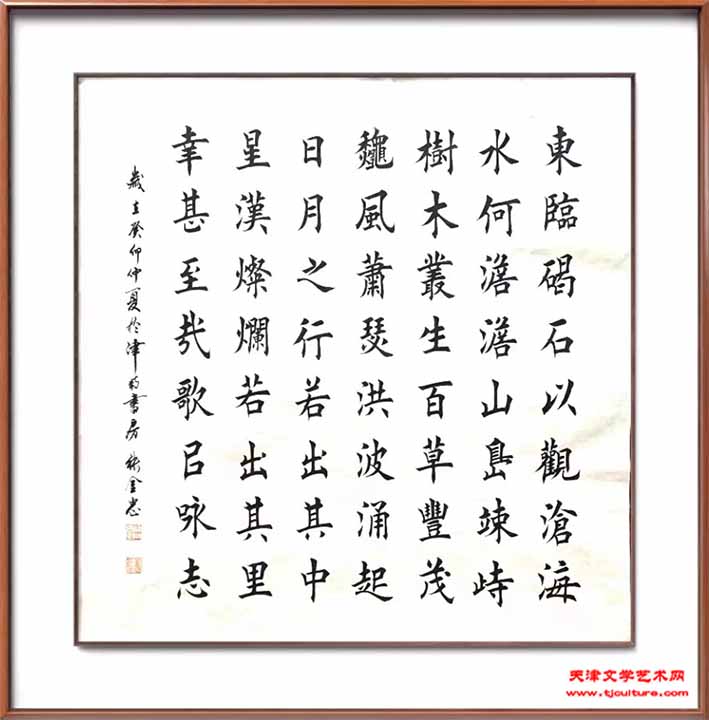 東臨碣石以觀滄海
水何澹澹山島竦峙
樹木叢生百草豐茂
龝風蕭瑟洪波涌起
日月之行若出其中
星漢燦爛若出其里
幸甚至哉歌㠯咏志
歲在癸卯仲夏於津書房張金忠
天津文学艺术网
www.tjculture.com